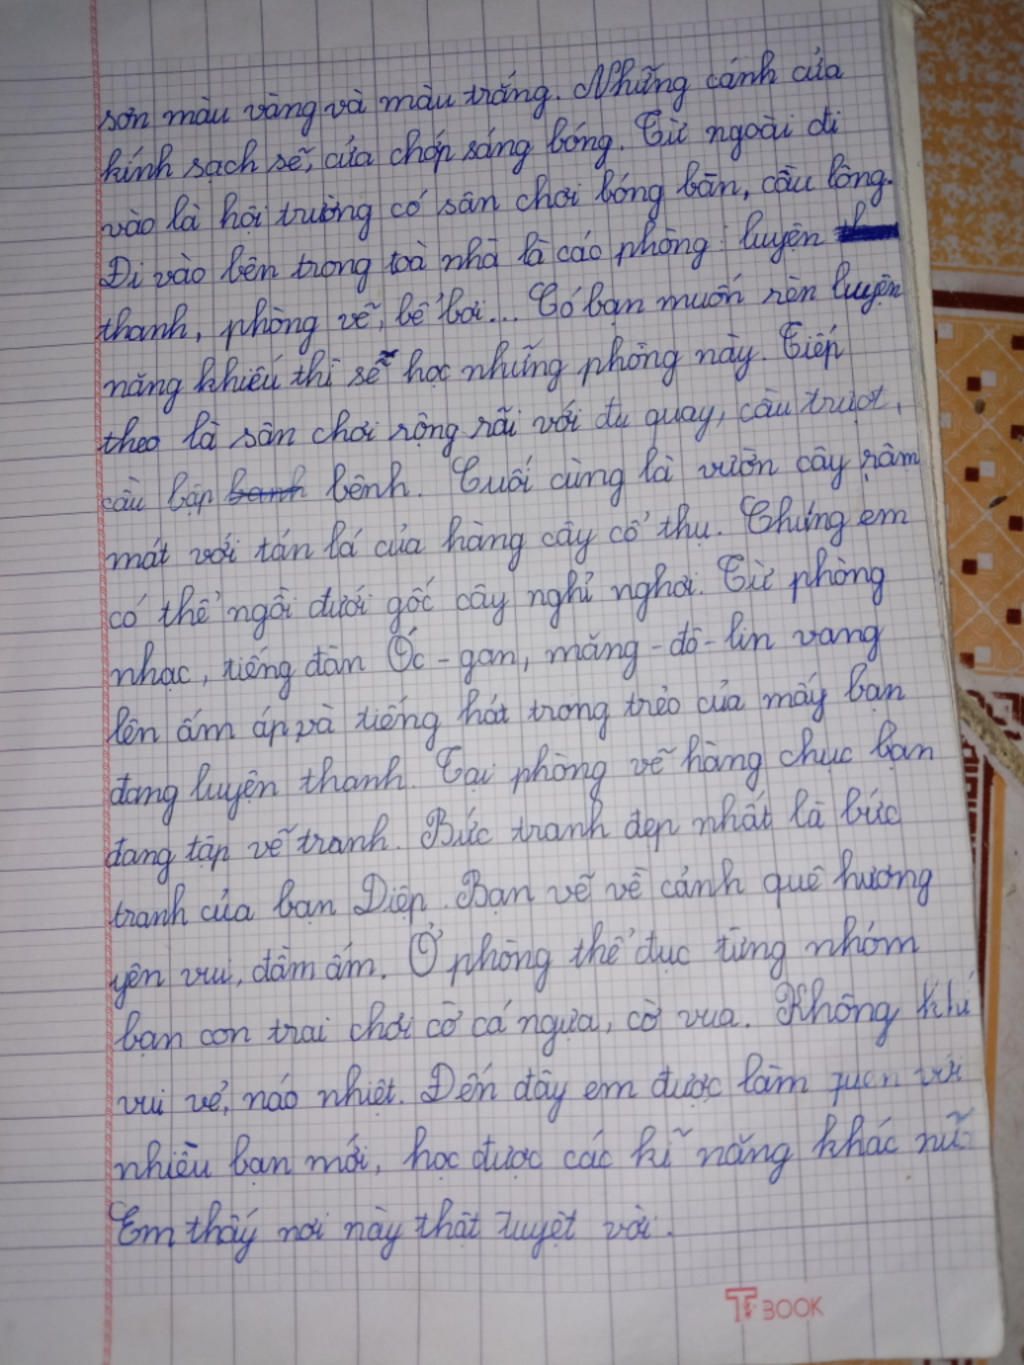 sơn màu vàng và màu trắng. Những cánh cửa
kính sạch sẽ, cửa chớp sáng bóng. Từ ngoài đi
vào là hội trường có sân chơi bóng bàn, cầu lông.
Đi vào bên trong toà nhà là các phòng: luyện
thanh, phòng vẽ, bể bơi... Có bạn muốn rèn luyện
năng khiếu thì sẽ học những phòng này. Tiếp
theo là sân chơi rộng rãi với đu quay, cầu trượt,
cầu bập bênh. Cuối cùng là vườn cây râm
mát với tán lá của hàng cây cổ thụ. Chúng em
có thể ngồi dưới gốc cây nghỉ nghơi. Từ phòng
nhạc, tiếng đàn Óc-gan, măng-đô-lin vang
lên ấm áp và tiếng hát trong trẻo của mấy bạn
đang luyện thanh. Tại phòng vẽ hàng chục bạn
đang tập vẽ tranh. Bức tranh đẹp nhất là bức
tranh của bạn Diệp. Bạn vẽ về cảnh quê hương
yên vui, đầm ấm. Ở phòng thể dục từng nhóm
bạn con trai chơi cờ cá ngựa, cờ vua. Không khí
vui vẻ, náo nhiệt. Đến đây em được làm quen với
nhiều bạn mới, học được các kĩ năng khác nữa
Em thấy nơi này thật tuyệt vời.
BOOK